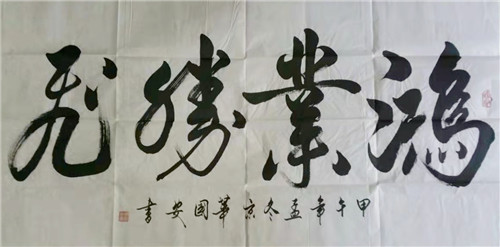 鴻業勝飛
甲午年孟冬京華國安書